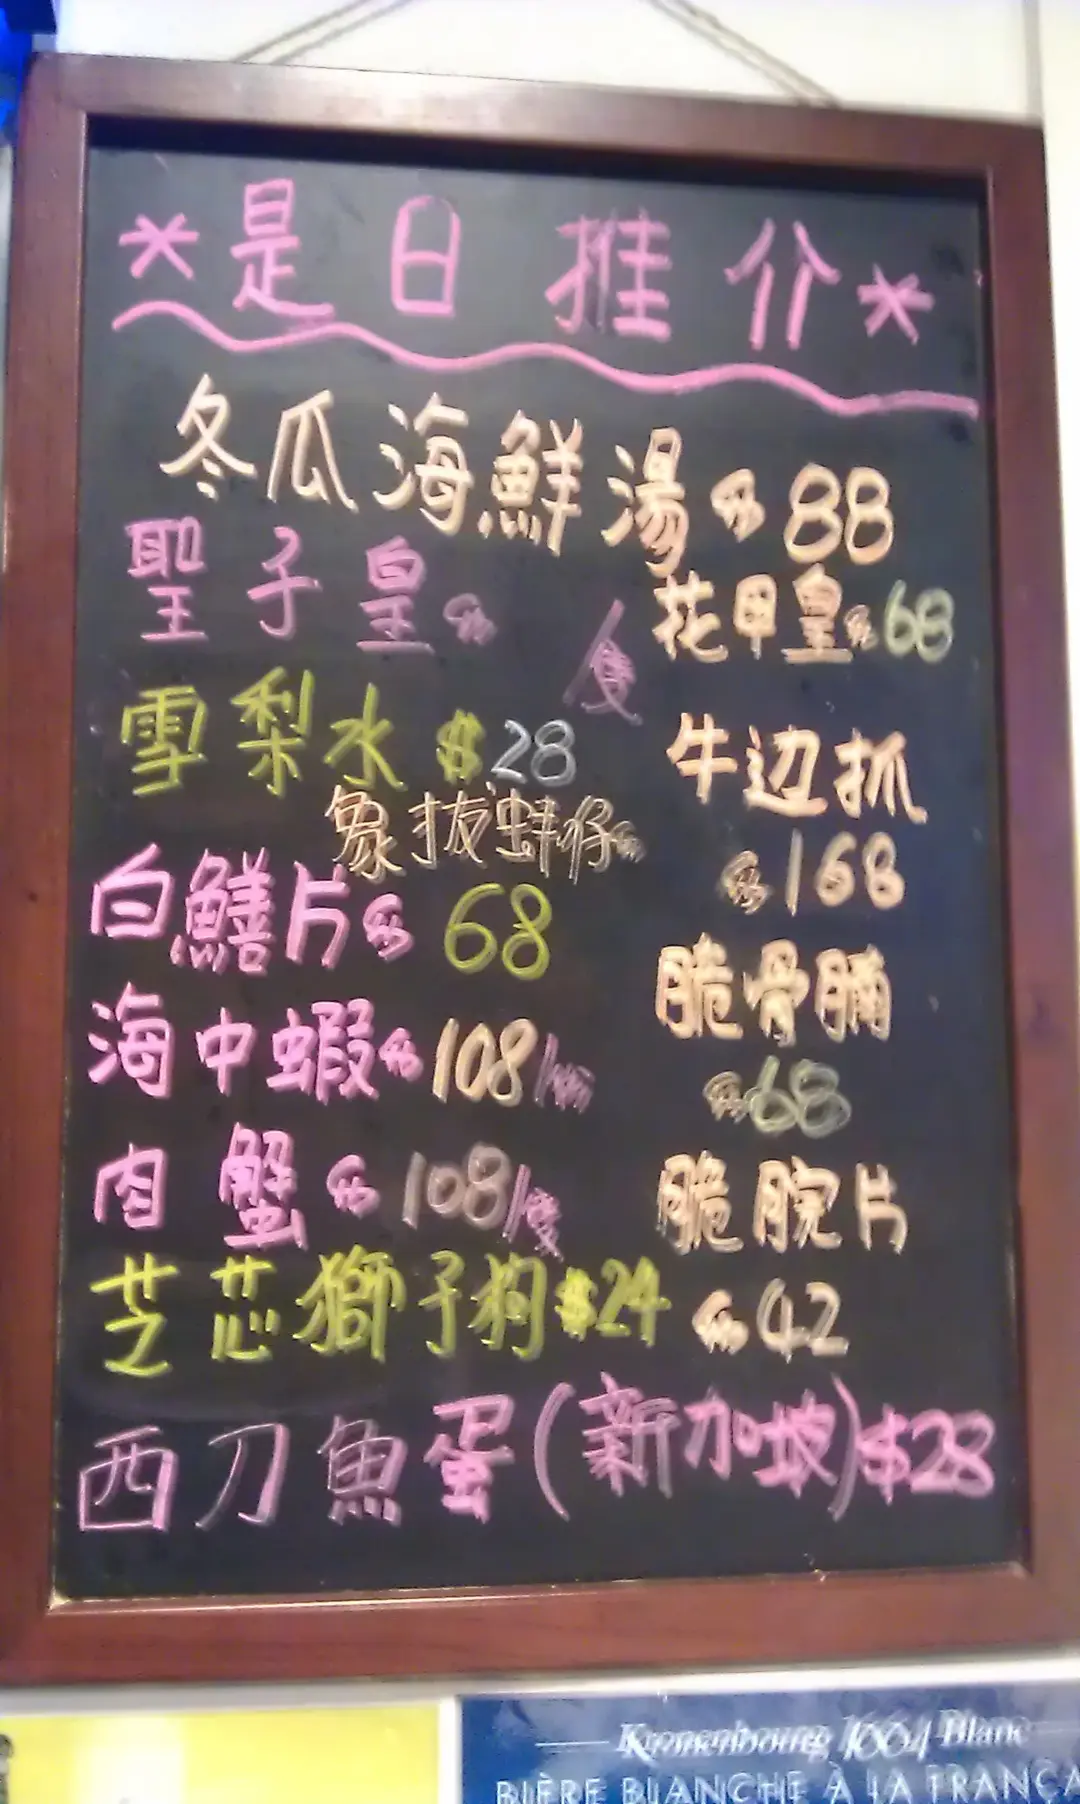 *是日推介*
冬瓜海鮮湯$88
聖子皇$ /隻
花甲皇$68
雪梨水$28
牛边抓
$168
象拔蚌仔$
白鱔片$68
脆骨腩
$68
海中蝦$108/
肉蟹$108/隻
脆脘片
$42
芝芯獅子狗$24
西刀魚蛋(新加坡)$28
Kronenbourg 1664 Blanc
BIÈRE BLANCHE À LA FRANÇA